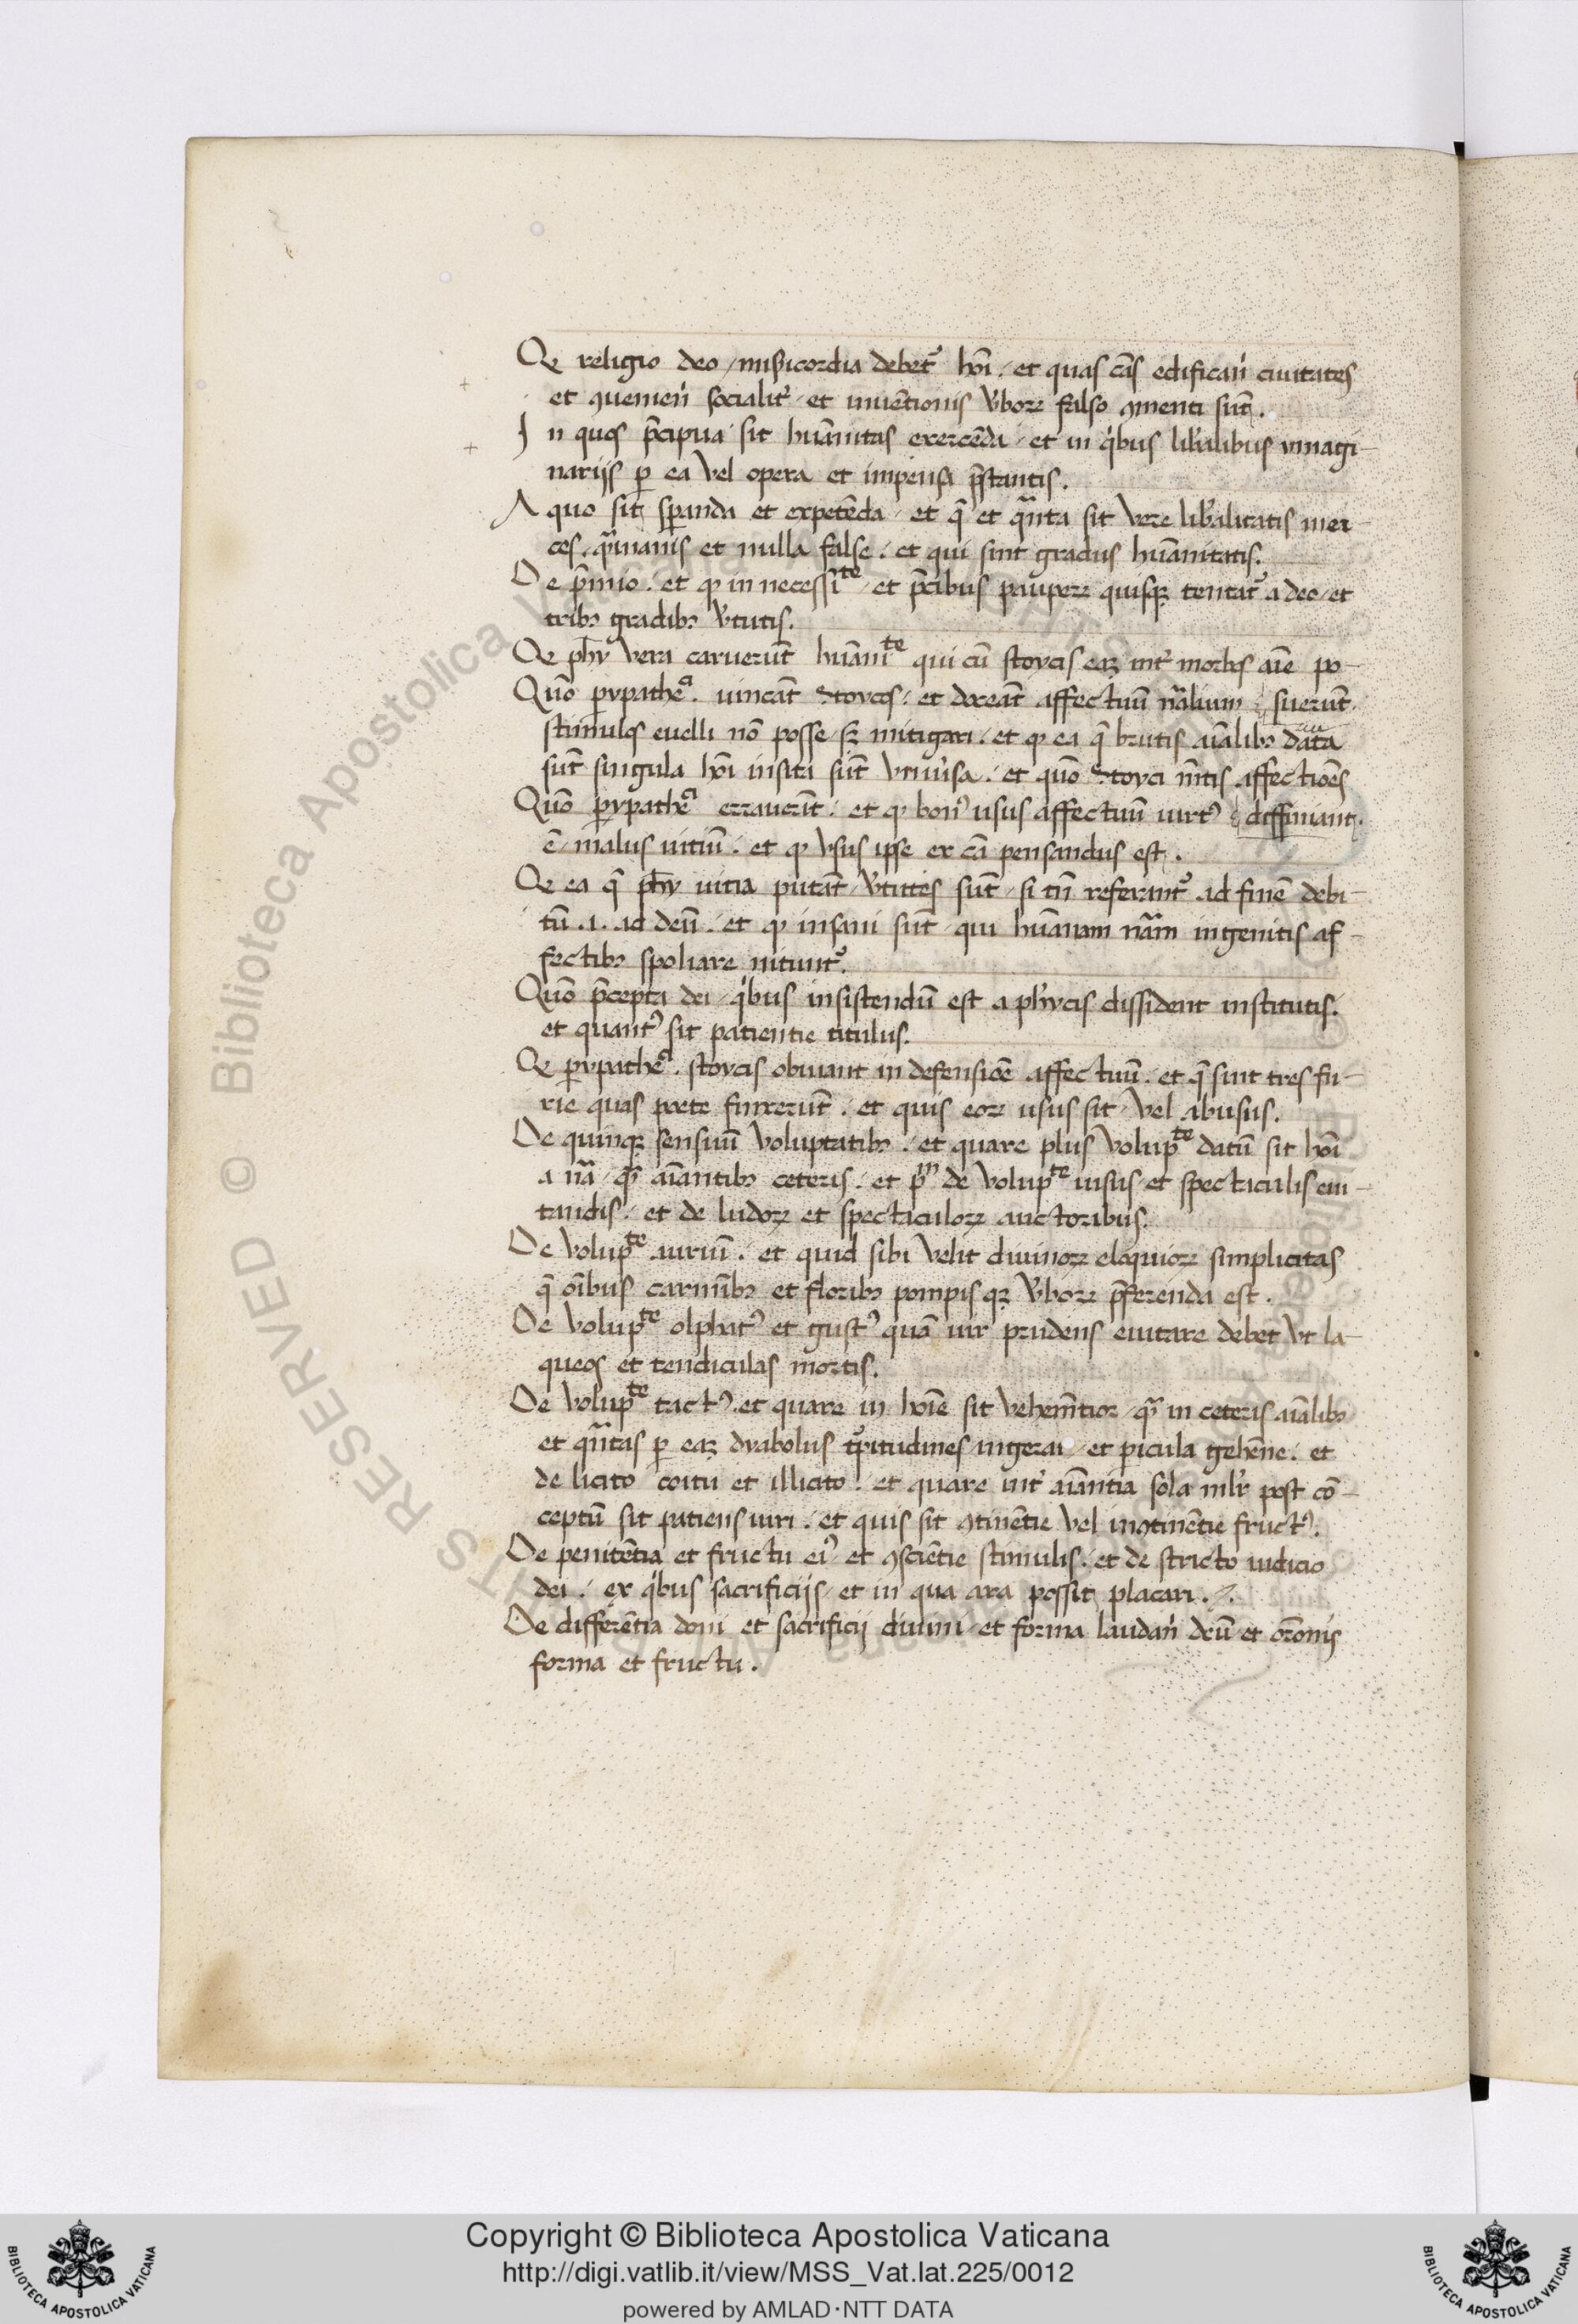 Qɇ religio deo / misericordia debet᷒ hoi̅ . et quas cās edifican̄ ciuitates
et ꝯuenien̄ socialit᷒ . et inuētionis v̉boꝝ falso ꝯmenti sūt .
In quos p̄cipua sit huānitas exercēda . et in q̇bus lib̉alibus ymagi-
narijs ꝑ ea vel opera et impensa p̄stantis .
A quo sit speranda et expetēda . et q̄ et qn̄ta sit vere lib̉alitatis mer
ces . q̄ inanis et nulla false . et qui sint gradus huānitatis .
De p̄mio . et ꝙ in necessi^te . et p̄cibus pauperꝝ quisqꝫ tentat᷒ a deo . et
tribꝫ gradibꝫ v̉tutis .
Qɇ phy̅ vera caruerūt huāni^te qui cū stoycis eaꝫ int᷒ morbos aīe po-
Quō pypathe^a . uincāt stoycos . et doceāt affectuū nāliuꝫ suerūt .
stimulos euelli nō posse sꝫ mitigari . et ꝙ ea q̄ brutis aīalibꝫ data
sūt singula hoi̅ insita sūt vniu̇sa . et quō stoyci mētis affectiōes
Quō pypathe^a erraueīt . et ꝙ bon᷒ usus affectuū uirt᷒ diffiniant .
ē / malus uitiū . et ꝙ vsus ipse ex cā pensandus est .
Qɇ ea q̄ phy̅ uitia putāt v̉tutes sūt . si tn̄ referant᷒ ad finē debi-
tū . i . ad deū . et ꝙ insani sūt qui huānam nāꝫ ingenitis af-
fectibꝫ spoliare nitunt᷒ .
Quō p̄cepta dei q̇bus insistendū est a phycis dissident institutis .
et quant᷒ sit patientie titulus .
Qɇ pypathe^a . stoycis obuiant in defensiōe affectuū . et q̄ sint tres fu-
rie quas poete finxerūt . et quis eoꝝ usus sit vel abusus .
De quinqꝫ sensuū voluptatibꝫ . et quare plus volup^te datū sit hoi̅
a nā qꝫ aīantibꝫ ceteris . et p̄^m de volup^te uisus et spectaculis eui-
tandis . et de ludoꝝ et spectaculoꝝ auctoribus .
De volup^te auriū . et quid sibi velit diuinoꝝ eloquioꝝ simplicitas
q̄ oībus carmībꝫ et floribꝫ pompisqꝫ v̉boꝝ p̄ferenda est .
De volup^te olphat᷒ et gust᷒ quā uir prudens euitare debet vt la-
queos et tendiculas mortis .
De volup^te tact᷒ . et quare in hoīe sit vehemētior qꝫ in ceteris aīalibꝫ
et qn̄tas ꝑ eaꝫ dyabolus turpitudines ingerat et picula gehēne . et
de licito coitu et illicito . et quare int᷒ aīantia sola mlr̉ post cō-
ceptū sit patiens uiri . et quis sit ꝯtinētie vel inꝯtinētie fruct᷒ .
De penitētia et fructu ei᷒ et ꝯsciētie stimulis . et de stricto iudicio
dei . ex q̇bus sacrificijs et in qua ara possit placari .
De differētia doni et sacrificij diuini et forma laudan̄ deū et orōnis
forma et fructu .
Copyright © Biblioteca Apostolica Vaticana
http://digi.vatlib.it/view/MSS_Vat.lat.225/0012
powered by AMLAD·NTT DATA